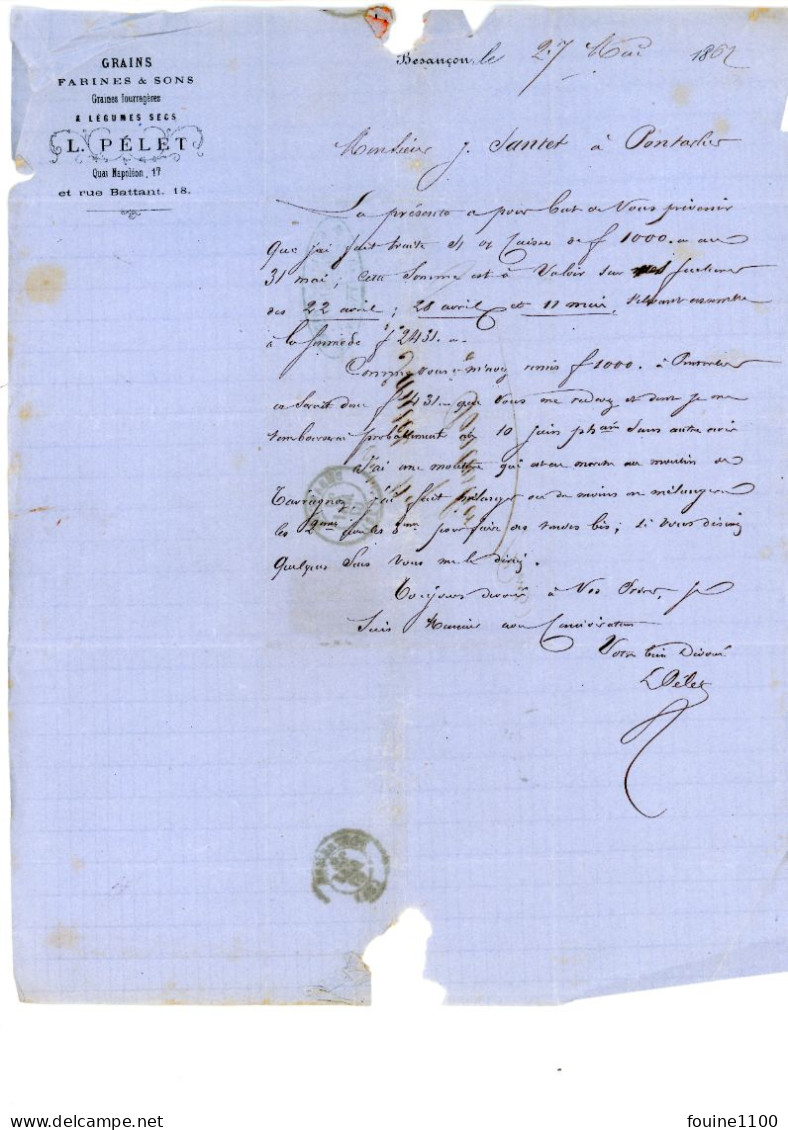 GRAINS
FARINES & SONS
Graines fourragères
& LÉGUMES SECS
L. PÉLET
Quai Napoléon, 17
et rue Battant, 18.
Besançon, le 27 Mai 1862
Monsieur J. Santet à Pontarlier
La présente a pour but de Vous prévenir
que j'ai fait traite et caisse de f 1000. au
31 mai; cette Somme est à Valoir sur mes factures
des 22 avril; 28 avril et 11 mai, s'élevant ensemble
à la somme de f 2431.
Comme vous m'avez remis f 1000. à Pontarlier
ce serait donc f 431 que vous me redevez et dont je me
rembourserai probablement au 10 juin pain Sans autre avis
J'ai une mouture qui est au moulin de
Tarragnoz, j'ai fait mélanger ou du moins on mélangera
les 2èmes avec les 3èmes pour faire des rondes bis; Si vous désirez
quelques Sacs vous me le direz.
Toujours dévoué à Vos Ordres, je
Suis Monsieur avec Considération
Votre bien Dévoué
L Pélet
fouine1100